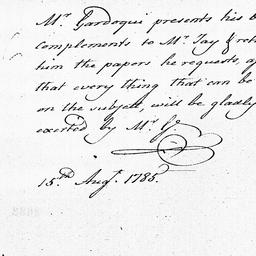 Mr. Gardoqui presents his
complements to Mr. Jay &
him the papers he requests,
that every thing that can be
on the subject, will be gladly
exerted by Mr. G.
15th Augt. 1785.